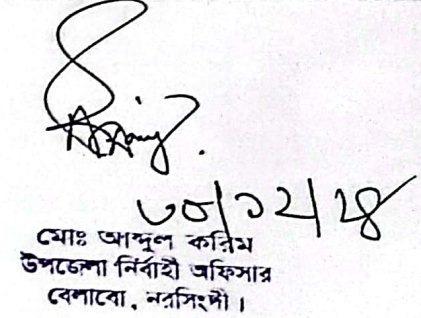 ৩০/১২/২৪
মোঃ আব্দুল করিম
উপজেলা নির্বাহী অফিসার
বেলাবো, নরসিংদী।